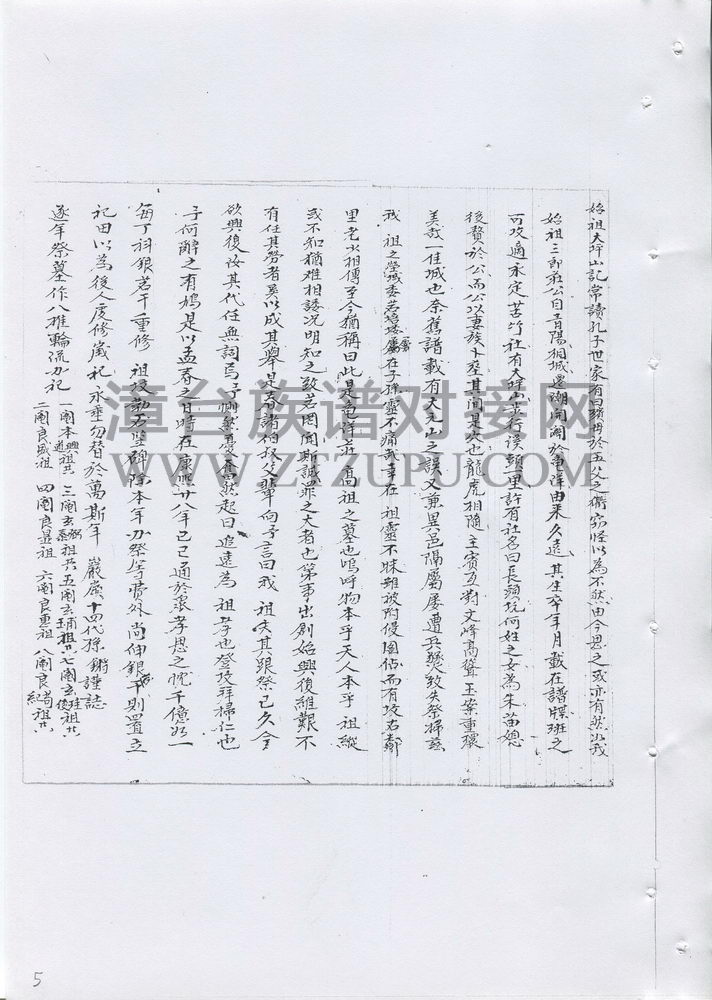 始祖大坪山記常讀孔子世家有曰殯母於五父之衢窃怪以為不然由今思之或亦有然出我
始祖三郎莊公自青陽桐城遷潮開闢於南洋由來久遠其生卒年月載在譜牒班之
可攷適永定苦竹社有大坪山步行設頭里許有社名曰長頭坑何姓之女為朱苗媳
後贅於公而公以妻族卜塟其間是穴也龍虎相隨主賓互對文峰高聳玉案重環
美哉一佳城也奈舊譜載有大尖山之誤又兼異邑隔屬屢遭兵燹致失祭掃茲
我 祖之塋城委若 屬在子孫靈不痛哉幸在 祖靈不昧雖被附侵圖佔而有攷石
里老火相傳至今猶稱曰此是南洋莊 高祖之墓也嗚呼物本乎天人本乎 祖縱
或不知猶难相諉况明知之致若罔聞斯誠罪之大者也第事出創始興復維艱不
有任其勞者奚以成其舉是春諸伯叔父輩向予言曰我 祖失其跟祭已久今
欲興復汝其代任無詞焉予惻然憂奮然起曰追遠為 祖孝也登攷拜掃仁也
予何辭之有鳩是以孟春之日時在康熙廿八年己巳通於衆孝思之忱千億如一
每丁科銀若干重修 祖攷勒石竪碑除本年办祭等費外尚伸銀 則置立
祀田以為後人度修歲祀永垂勿替於萬斯年 嚴廣十四代孫 鏘謹誌
逐年祭墓作八推輪流办祀 一阄本興祖共 三阄玄 祖共 五阄玄 祖 七阄玄 祖
二阄良盛祖 四阄良显祖 六阄良惠祖 八阄良 祖
漳台族谱对接网
WWW.ZTZUPU.COM
5